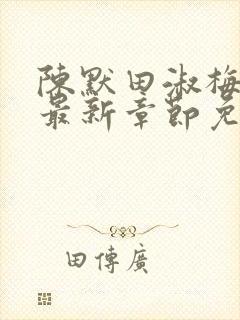 陳默田淑梅
最新章節免
田傳廣